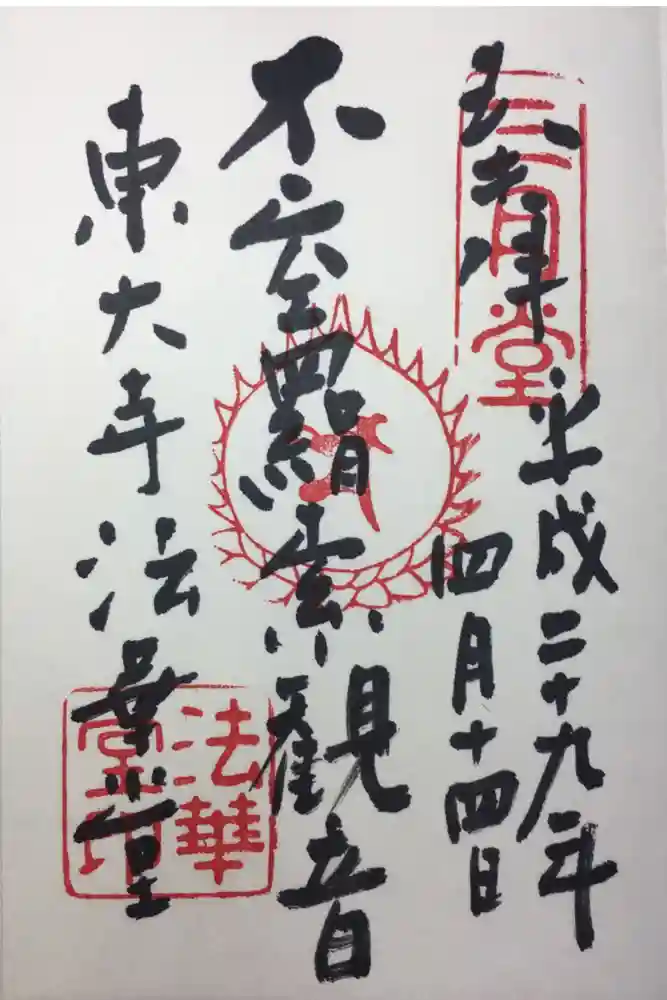 奉拝
三月堂
平成二十九年
四月十四日
不空羂索観音
東大寺法華堂
法華堂印